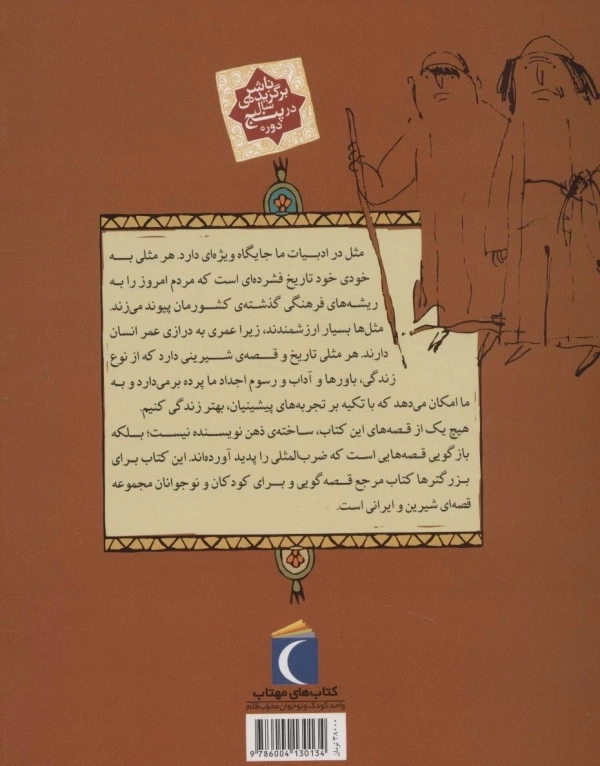 ناشر
برگزیده‌ی
سال
در پنج
دوره
مثل در ادبیات ما جایگاه ویژه‌ای دارد. هر مثلی به
خودی خود تاریخ فشرده‌ای است که مردم امروز را به
ریشه‌های فرهنگی گذشته‌ی کشورمان پیوند می‌زند.
مثل‌ها بسیار ارزشمندند، زیرا عمری به درازی عمر انسان
دارند. هر مثلی تاریخ و قصه‌ی شیرینی دارد که از نوع
زندگی، باورها و آداب و رسوم اجداد ما پرده برمی‌دارد و به
ما امکان می‌دهد که با تکیه بر تجربه‌های پیشینیان، بهتر زندگی کنیم.
هیچ یک از قصه‌های این کتاب، ساخته‌ی ذهن نویسنده نیست؛ بلکه
بازگویی قصه‌هایی است که ضرب‌المثلی را پدید آورده‌اند. این کتاب برای
بزرگترها کتاب مرجع قصه‌گویی و برای کودکان و نوجوانان مجموعه
قصه‌ای شیرین و ایرانی است.
کتاب‌های مهتاب
واحد کودک و نوجوان محراب قلم
۳۸۰۰۰ تومان
9 786004 130134